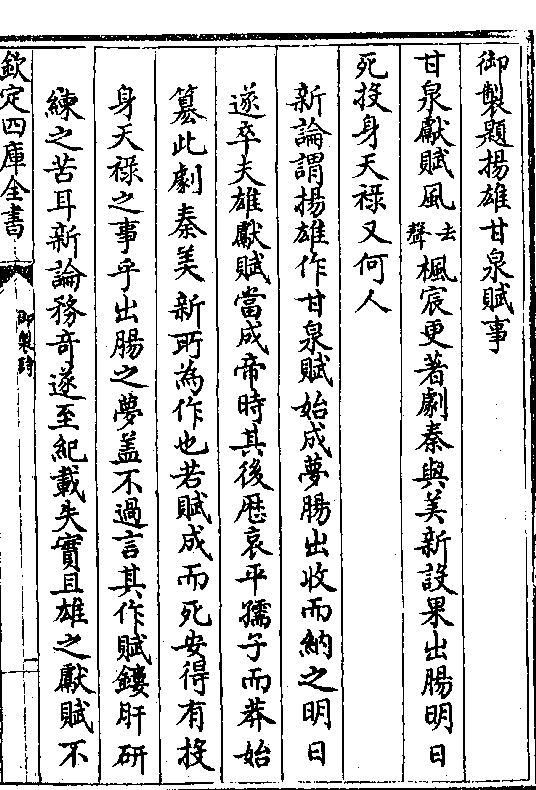 御製題揚雄甘泉賦事
甘泉獻賦風去聲楓宸更著劇秦與美新設果出腸明日
死投身天禄又何人
新論謂揚雄作甘泉賦始成夢腸出收而納之明日
遂卒夫雄獻賦當成帝時其後歴哀平孺子而莽始
簒此劇秦美新所為作也若賦成而死安得有投
身天禄之事乎出腸之夢盖不過言其作賦鏤肝研
練之苦耳新論務竒遂至紀載失實且雄之獻賦不
欽定四庫全書
御製詩